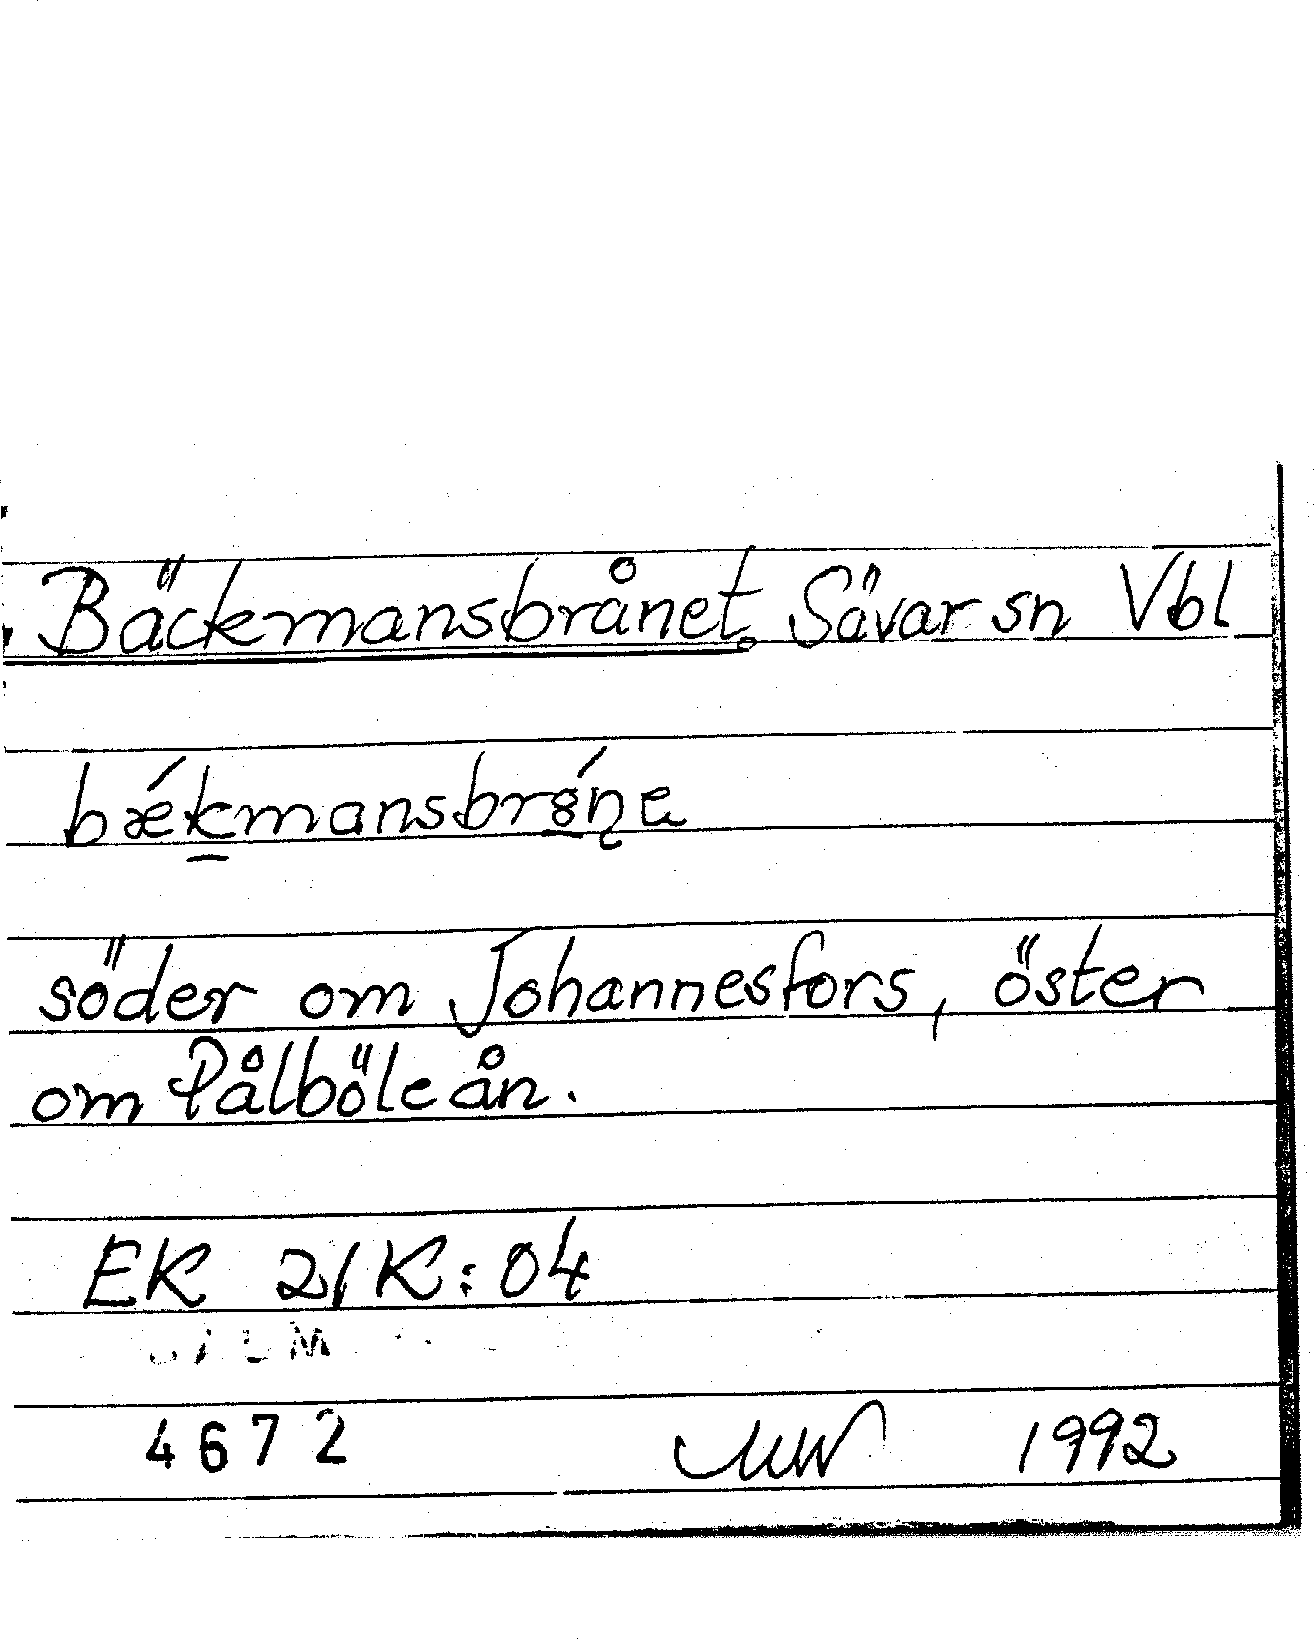 Bäckmansbrånet. Sävar sn Vbl
söder om Johannesfors, öster
om Pålböleån.
EK 21K:04
4672 1992